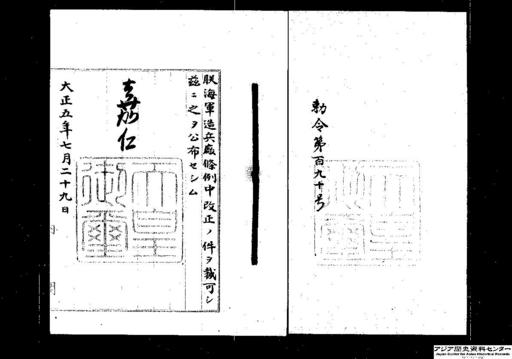 勅令第百九十号
朕海軍造兵廠條例中改正ノ件ヲ裁可シ
茲ニ之ヲ公布セシム
嘉仁
天皇
御璽
大正五年七月二十九日
アジア歴史資料センター
Japan Center for Asian Historical Records